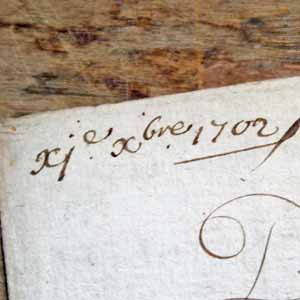 xj.e xbre 1702
D